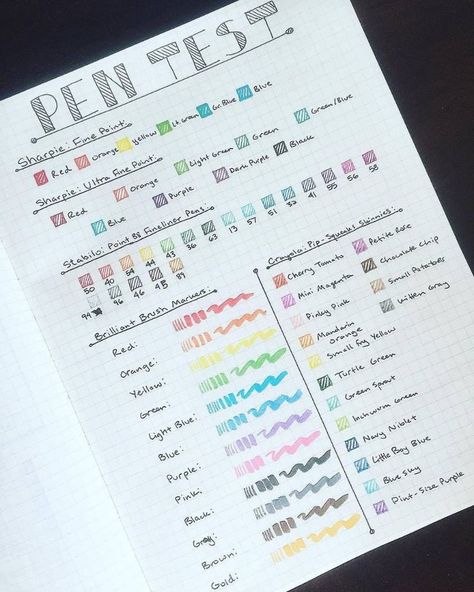 PEN TEST
Sharpie: Fine Point
Red Orange Yellow Lt. Green Gr. Blue Blue
Sharpie: Ultra Fine Point
Red Orange Light Green Green Green/Blue
Blue Purple Dark Purple Black
Stabilo: Point 88 Fineliner Pens
50 40 54 44 43 36 63 13 57 51 32 41 55 56 58
94 96 46 45 89
Brilliant Brush Markers:
Red:
Orange:
Yellow:
Green:
Light Blue:
Blue:
Purple:
Pink:
Black:
Grey:
Brown:
Gold:
Crayola: Pip-Squeaks Skinnies:
Cherry Tomato
Mini Magenta
Pinky Pink
Mandarin
Orange
Small Fry Yellow
Turtle Green
Green Sprout
Inchworm Green
Navy Niblet
Little Boy Blue
Blue Sky
Pint-Size Purple
Petite Rose
Chocolate Chip
Small Potatoes
Kitten Gray